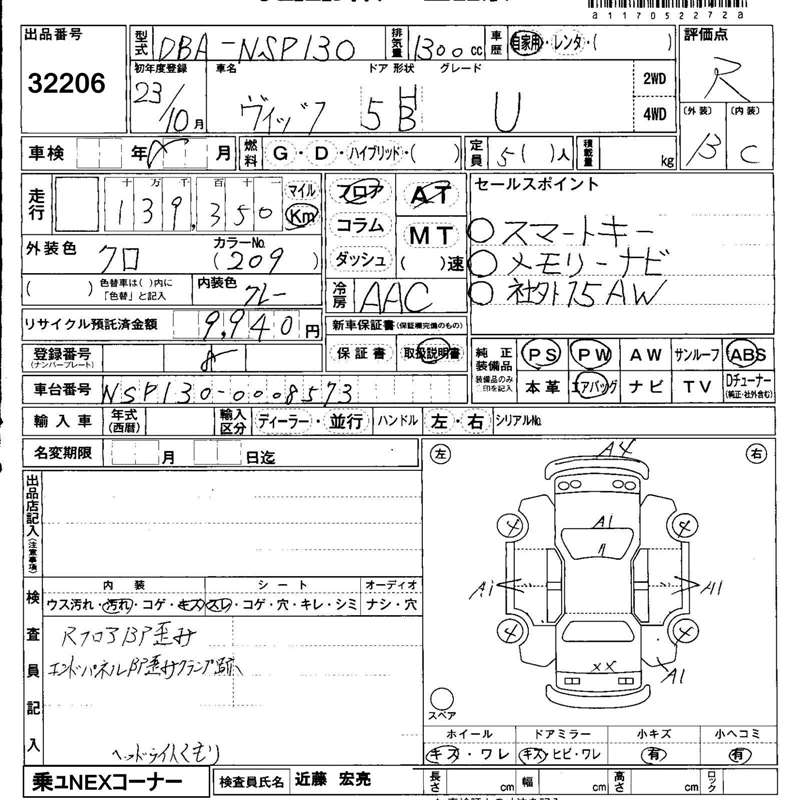 a1170522728
出品番号 型式 DBA-NSP130 排気量 1300cc 車歴 自家用・レンタ・( ) 評価点
32206 初年度登録 車名 ドア 形状 グレード 2WD R
23/10月 ヴィッツ 5 HB U 4WD (外装) (内装)
B C
車検 年 月 燃料 G・D・ハイブリッド・( ) 定員 5( )人 積載量 kg
走行 十万千百十一 マイル フロア AT セールスポイント
139,350 Km コラム MT ○スマートキー
外装色 クロ カラーNo. (209) ダッシュ ( )速 ○メモリーナビ
( ) 色替車は( )内に「色替」と記入 内装色 グレー 冷房 AAC ○社外15AW
リサイクル預託済金額 9,940円 新車保証書(保証欄完備のもの)
登録番号 (ナンバープレート) 保証書 取扱説明書 純正装備品 PS PW AW サンルーフ ABS
車台番号 NSP130-0008573 装備品のみ印を記入 本革 エアバッグ ナビ TV Dチューナー (純正・社外含む)
輸入車 年式(西暦) 輸入区分 ディーラー・並行 ハンドル 左・右 シリアルNo.
名変期限 月 日迄 左 右
出品店記入(注意事項)
A4
4 4
A1
A1 A1
4 4
XX
A1
スペア
検査員記入 内装 シート オーディオ
ウス汚れ・汚れ・コゲ・キズ スレ・コゲ・穴・キレ・シミ ナシ・穴
RフロアBP歪み
エンドパネルBP歪みクランプ跡
ヘッドライトくもり
ホイール ドアミラー 小キズ 小ヘコミ
キズ・ワレ キズ・ヒビ・ワレ 有 有
乗ュNEXコーナー 検査員氏名 近藤 宏亮 長さ cm 幅 cm 高さ cm ロック